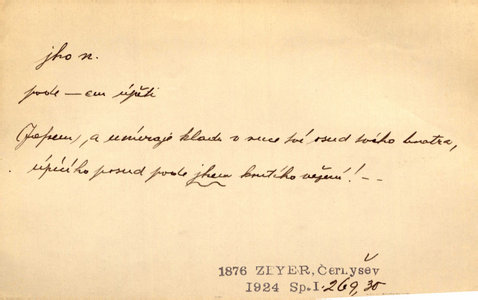 jho n.
pode — em úpěti
(Josem), a umíraje klade v ruce své osud svého bratra,
úpícího posud pode jhem krutého vězení! - -
1876 ZEYER, Černyšev
1924 Sp.I. 269,30